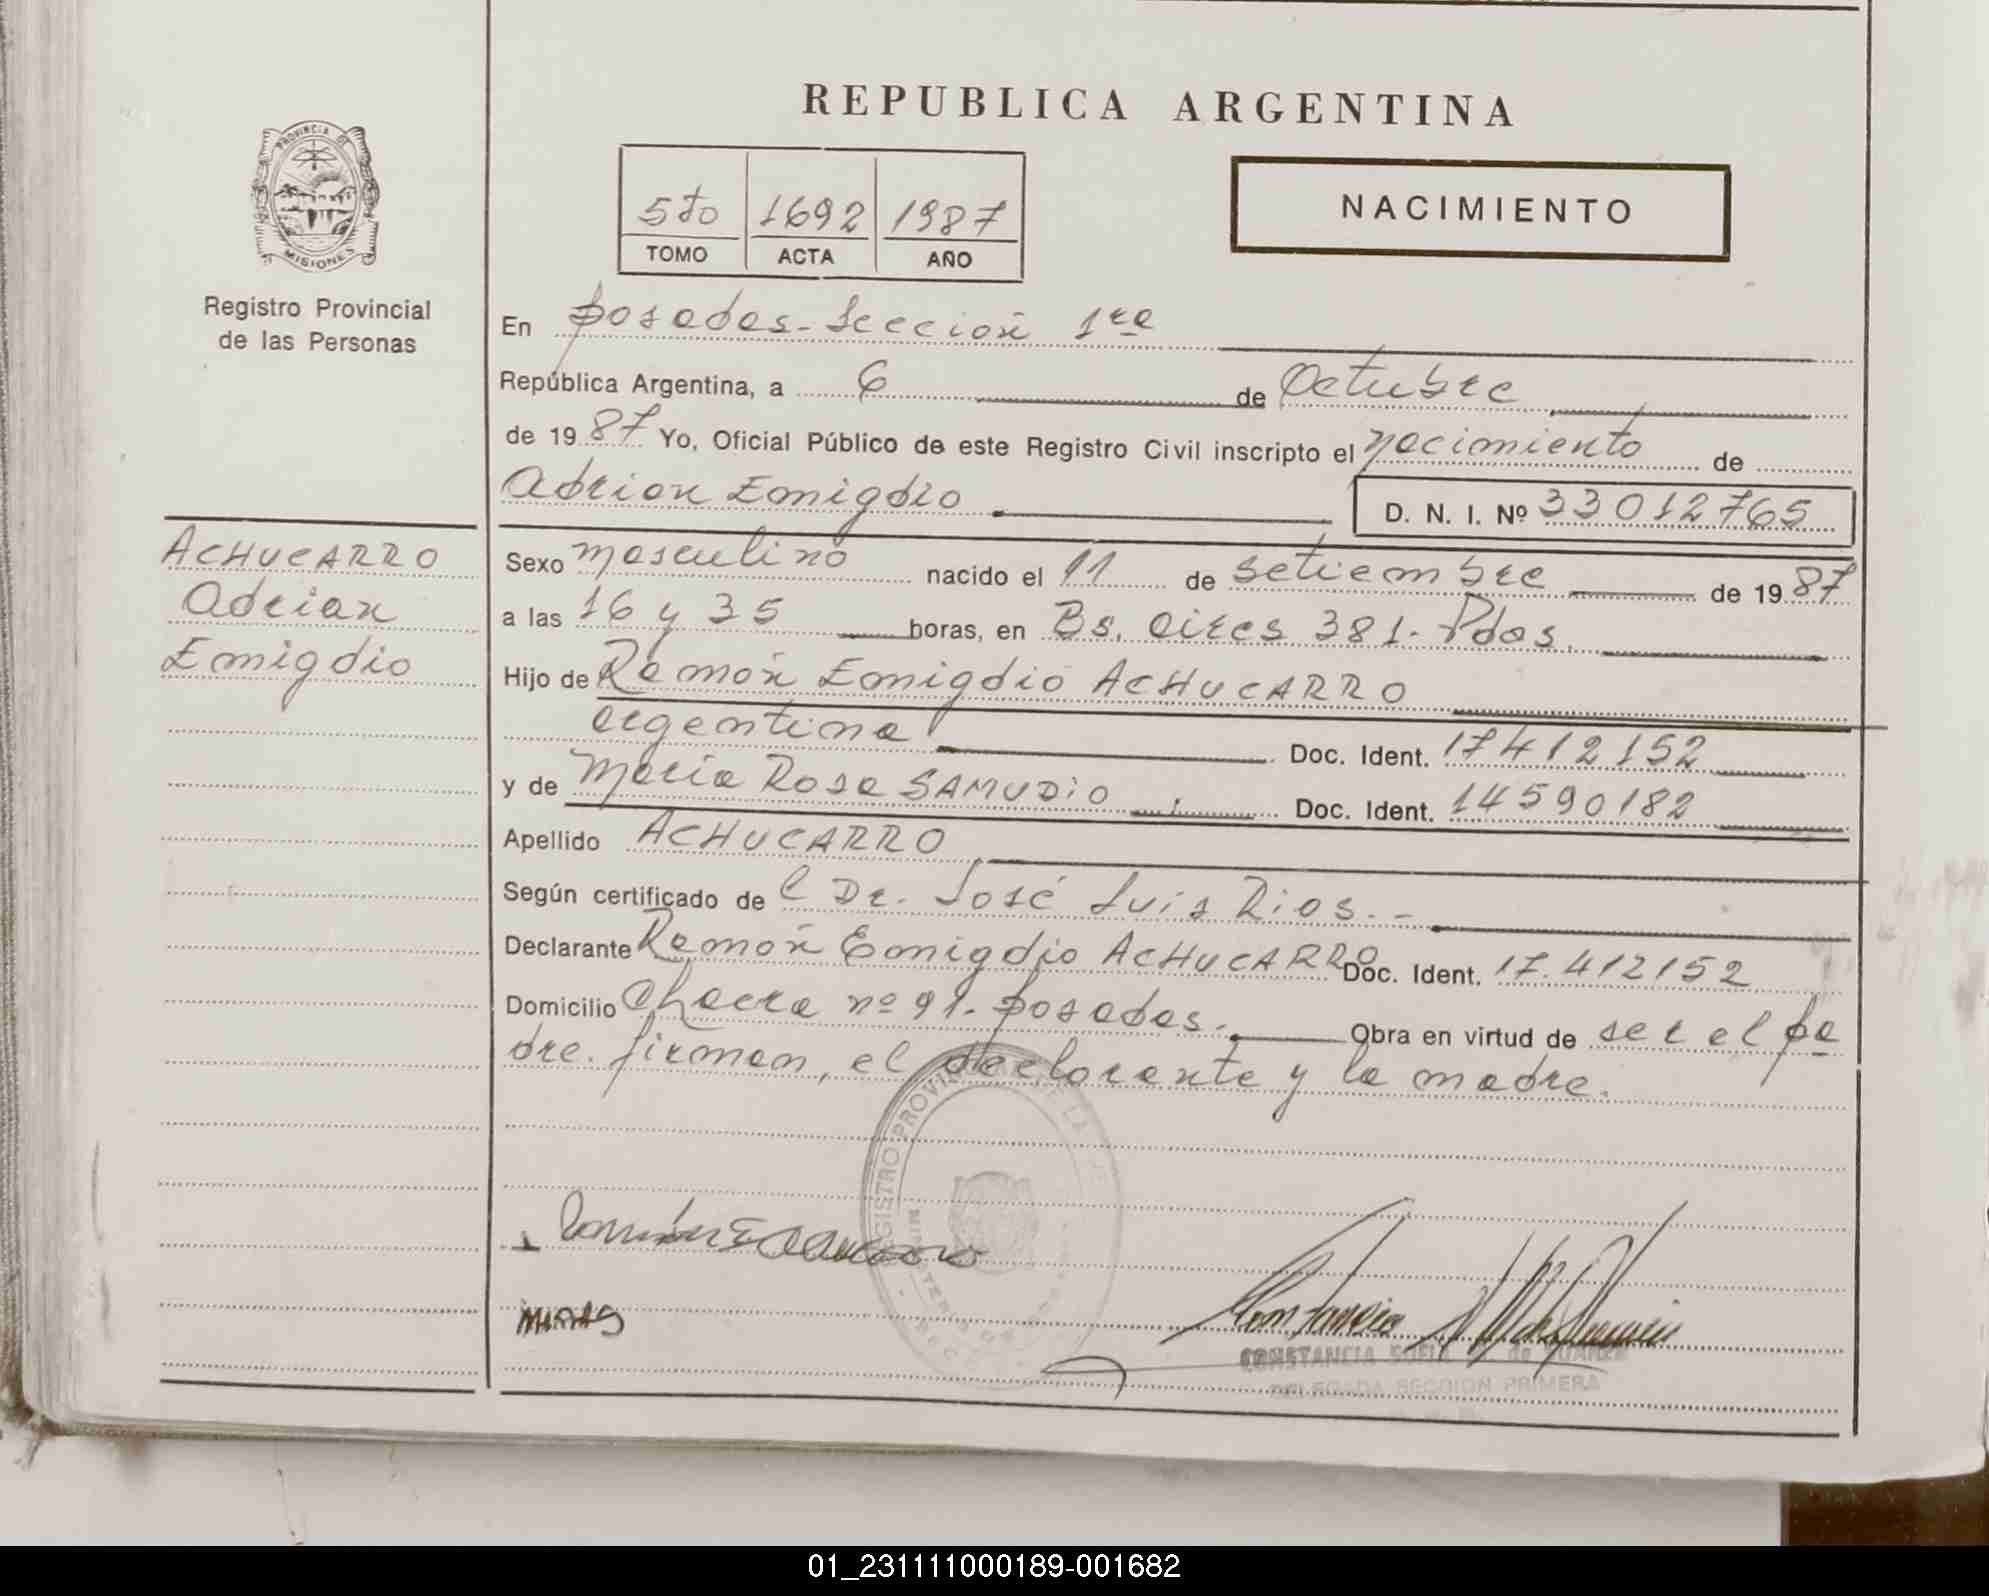 REPUBLICA ARGENTINA
PROVINCIA DE
MISIONES
Registro Provincial
de las Personas
5to 1692 1987
TOMO ACTA AÑO
NACIMIENTO
En Posadas - Sección 1ra
República Argentina, a 6 de Octubre
de 1987 Yo, Oficial Público de este Registro Civil inscripto el nacimiento de
Adrian Emigdio D. N. I. Nº 33012765
ACHUCARRO
Adrian
Emigdio
Sexo masculino nacido el 11 de setiembre de 1987
a las 16 y 35 horas, en Bs. Aires 381. Pdas.
Hijo de Ramón Emigdio ACHUCARRO
argentina Doc. Ident. 17412152
y de Maria Rosa SAMUDIO Doc. Ident. 14590182
Apellido ACHUCARRO
Según certificado de l Dr. José Luis Rios. -
Declarante Ramón Emigdio ACHUCARRO Doc. Ident. 17.412152
Domicilio Chacra nº 91. Posadas. Obra en virtud de ser el pa
dre. firman, el declarante y la madre.
REGISTRO PROVINCIAL DE LAS
CONSTANCIA de
DELEGADA SECCION PRIMERA
01_231111000189-001682